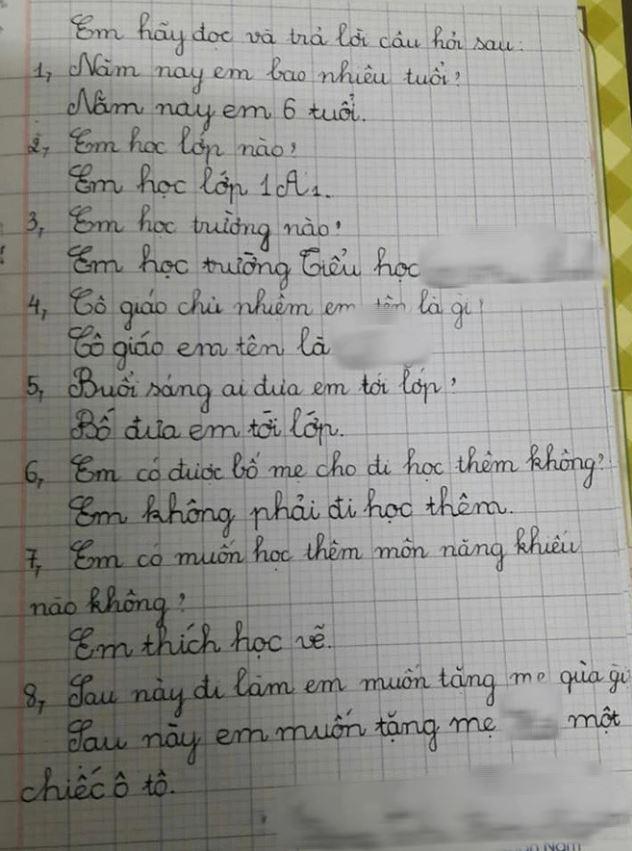 Em hãy đọc và trả lời câu hỏi sau:
1, Năm nay em bao nhiêu tuổi?
Năm nay em 6 tuổi.
2, Em học lớp nào?
Em học lớp 1A1.
3, Em học trường nào?
Em học trường Tiểu học
4, Cô giáo chủ nhiệm em tên là gì?
Cô giáo em tên là
5, Buổi sáng ai đưa em tới lớp?
Bố đưa em tới lớp.
6, Em có được bố mẹ cho đi học thêm không?
Em không phải đi học thêm.
7, Em có muốn học thêm môn năng khiếu
nào không?
Em thích học vẽ.
8, Sau này đi làm em muốn tặng mẹ quà gì
Sau này em muốn tặng mẹ một
chiếc ô tô.